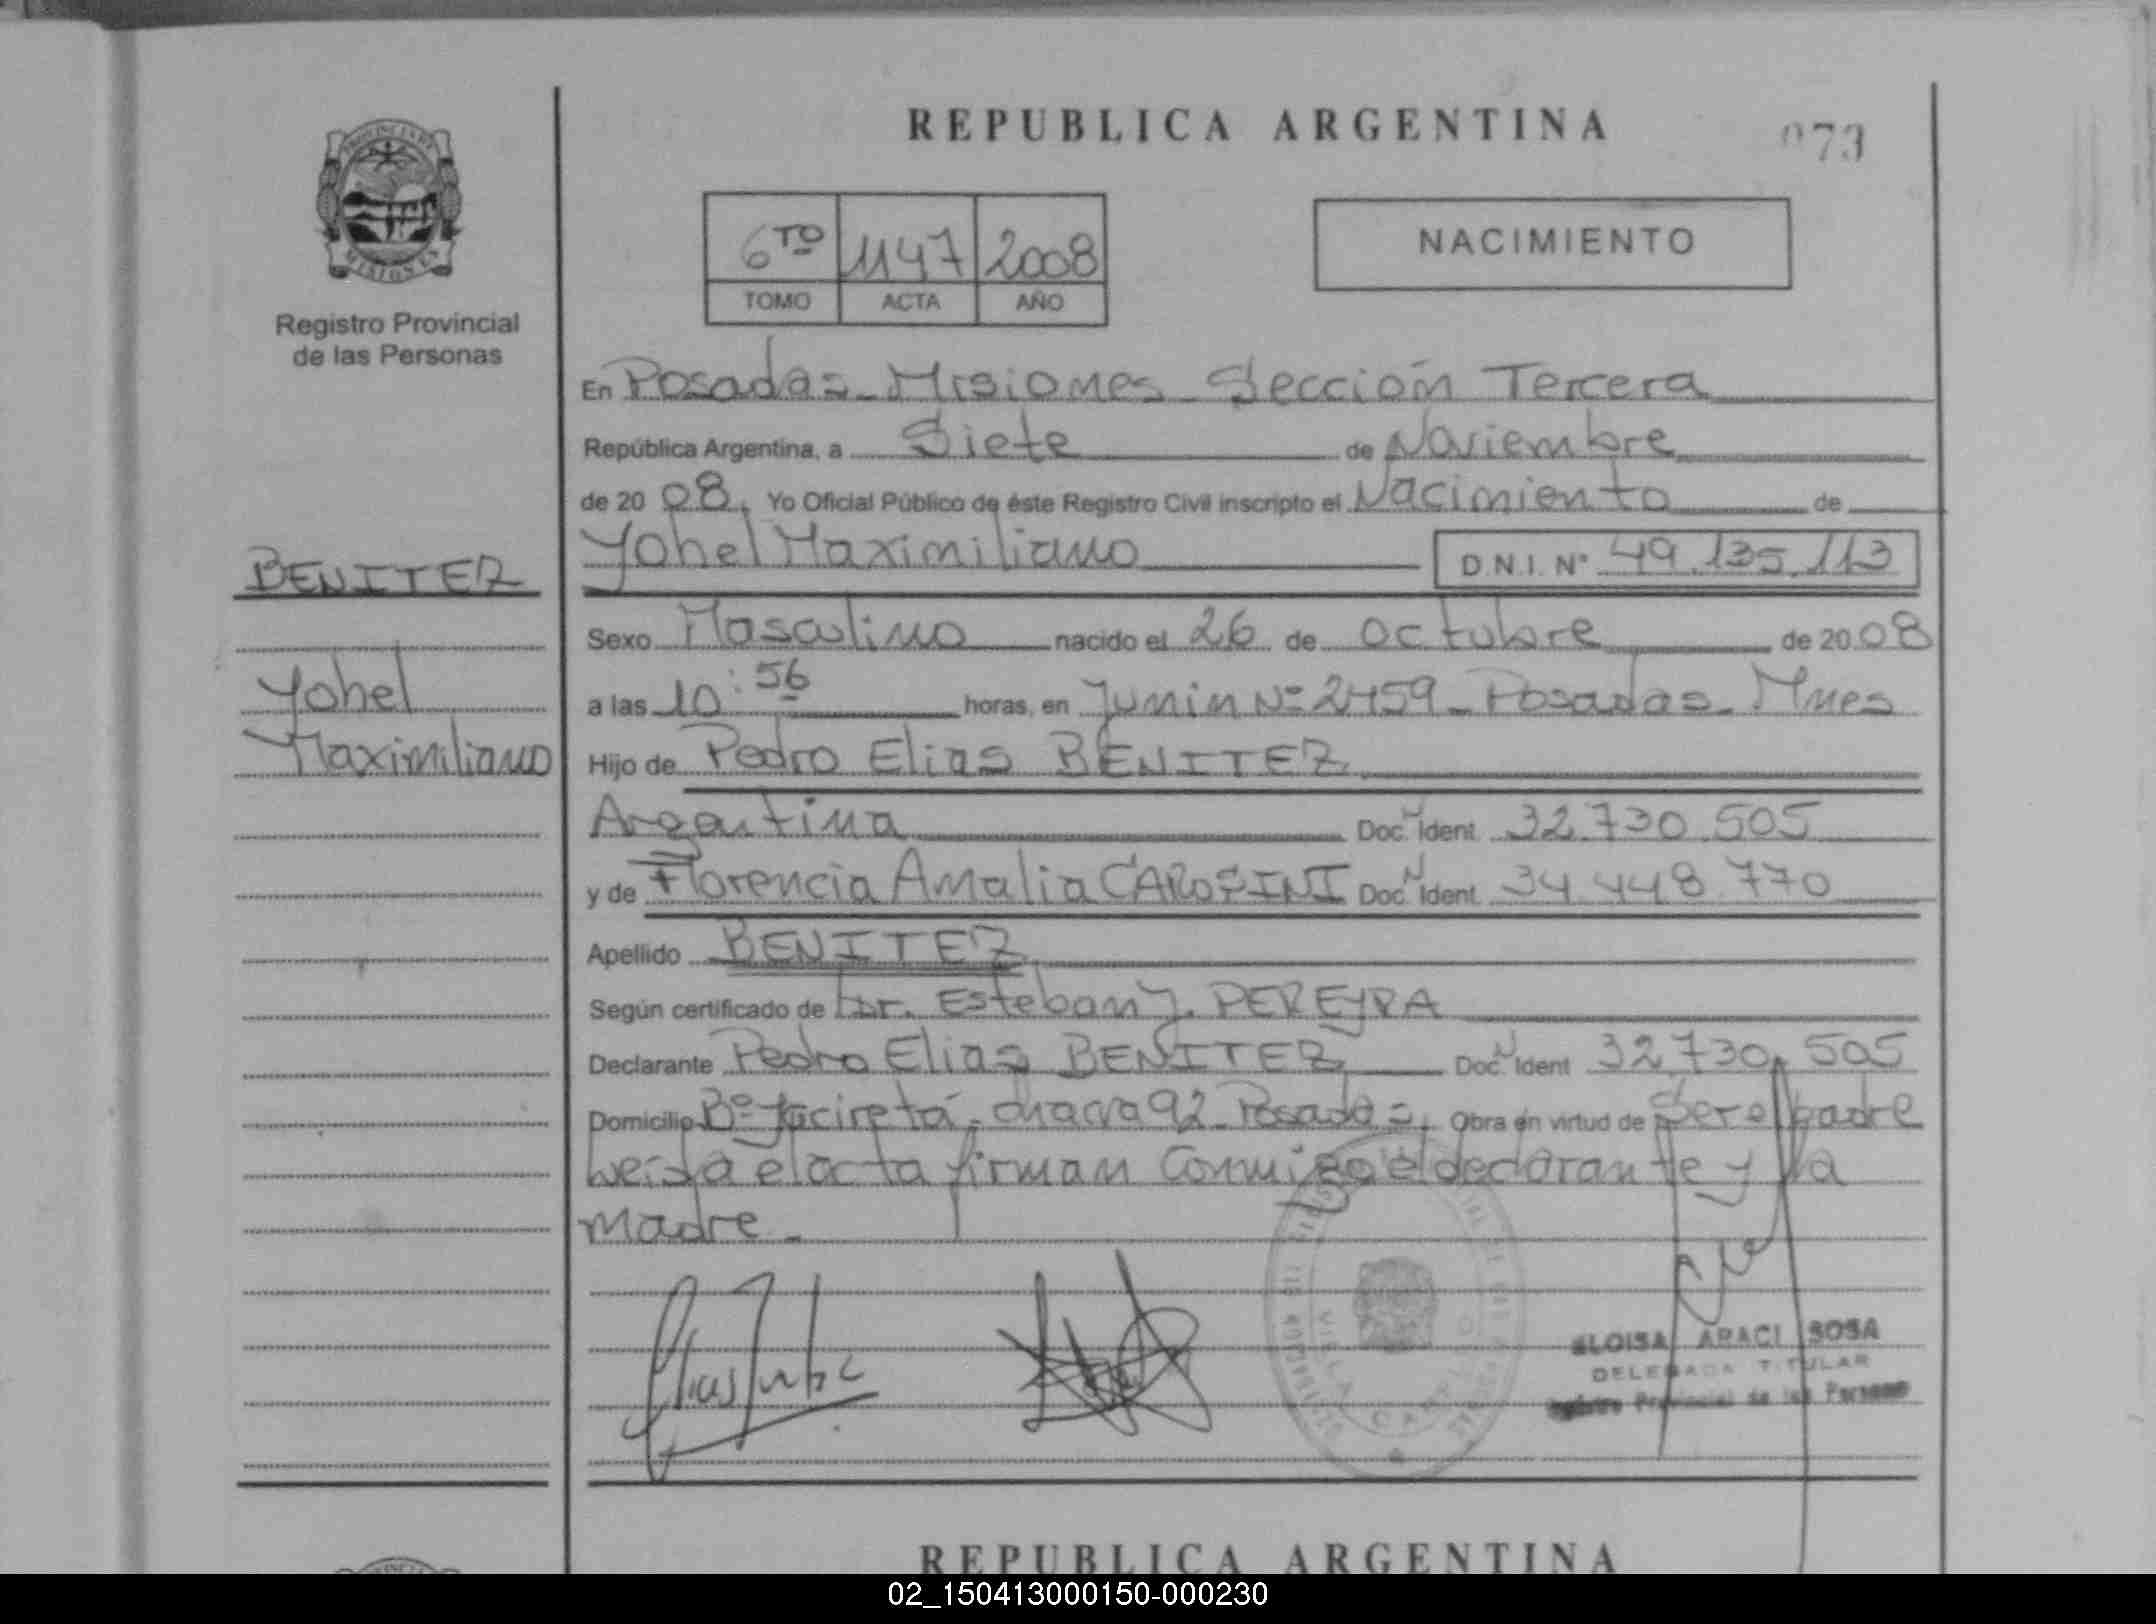 REPUBLICA ARGENTINA
073
PROVINCIA DE
MISIONES
Registro Provincial
de las Personas
6TO 1147 2008
TOMO ACTA AÑO
NACIMIENTO
En Posadas - Misiones - Sección Tercera
República Argentina, a Siete de Noviembre
de 20 08. Yo Oficial Público de éste Registro Civil inscripto el Nacimiento de
Yohel Maximiliano D.N.I. N° 49.135.113
BENITEZ
Yohel
Maximiliano
Sexo Masculino nacido el 26 de octubre de 20 08
a las 10:56 horas, en Junin Nº 2459 - Posadas - Mnes
Hijo de Pedro Elias BENITEZ
Argentina Doc. N Ident 32.730.505
y de Florencia Amalia Doc. N Ident 34.448.770
Apellido BENITEZ
Según certificado de Dr. Esteban J. PEREYRA
Declarante Pedro Elias BENITEZ Doc. N Ident 32.730.505
Domicilio Bº Yacireta - chacra 92 - Posadas. Obra en virtud de Ser el padre
leida el acta firman Conmigo el declarante y la
madre -
VILLA
ELOISA ARACI SOSA
DELEGADA TITULAR
Registro Provincial de las Personas
REPUBLICA ARGENTINA
02_150413000150-000230